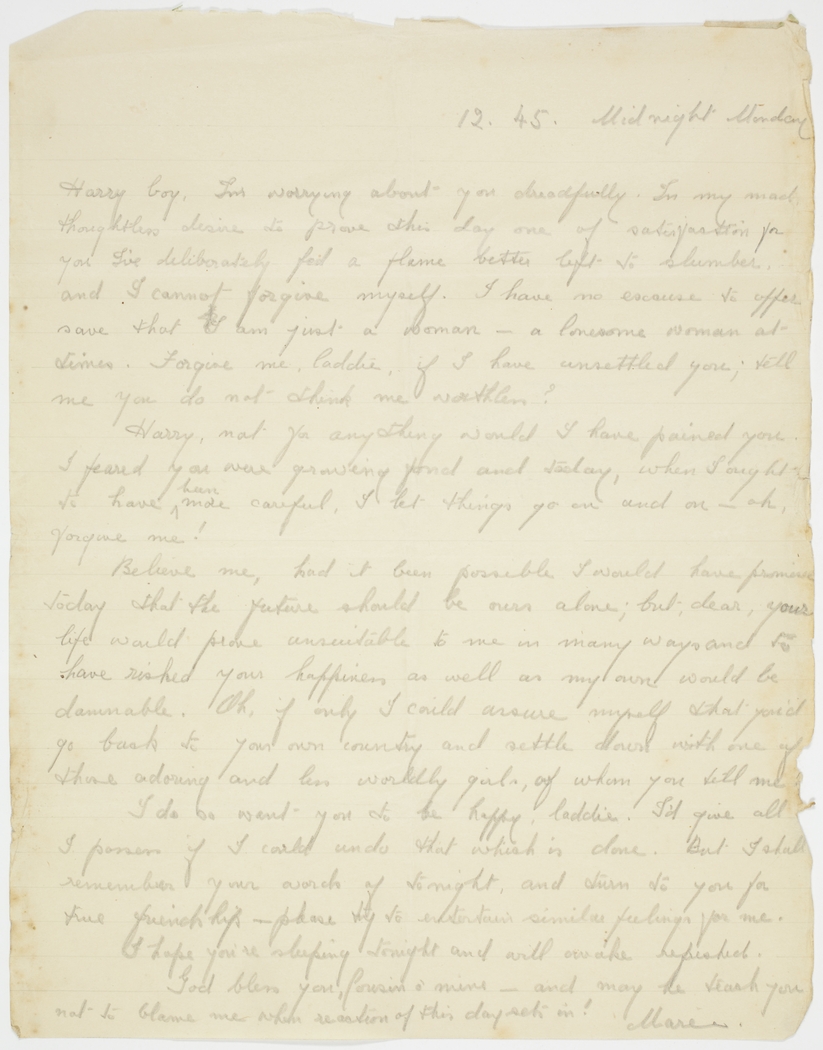 12. 45. Midnight Monday
Harry boy, I'm worrying about you dreadfully. In my mad,
thoughtless desire to prove this day one of satisfaction for
you I've deliberately fed a flame better left to slumber.
and I cannot forgive myself. I have no excuse to offer
save that I am just a woman – a lonesome woman at
times. Forgive me, laddie, if I have unsettled you; tell
me you do not think me worthless?
Harry, not for anything would I have pained you.
I feared you were growing fond and today, when I ought
to have been more careful, I let things go on and on – oh,
forgive me!
Believe me, had it been possible I would have promised
today that the future should be ours alone; but, dear, your
life would prove unsuitable to me in many ways and to
have risked your happiness as well as my own would be
damnable. Oh, if only I could assure myself that you'd
go back to your own country and settle down with one of
those adoring and less worldly girls, of whom you tell me!
I do so want you to be happy, laddie. I'd give all
I possess if I could undo that which is done. But I shall
remember your words of tonight, and turn to you for
true friendship – please try to entertain similar feelings for me.
I hope you're sleeping tonight and will awake refreshed.
God bless you, Cousin o' mine – and may he teach you
not to blame me when reaction of this day sets in! Marie.